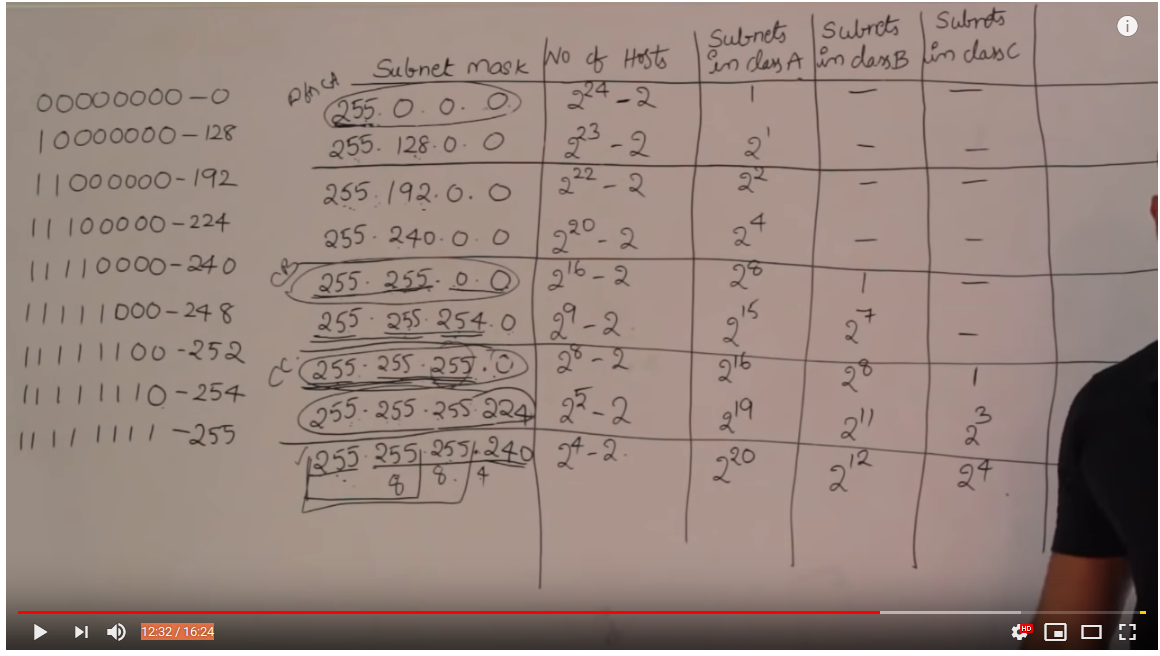 00000000 - 0
10000000 - 128
11000000 - 192
11100000 - 224
11110000 - 240
11111000 - 248
11111100 - 252
11111110 - 254
11111111 - 255
Subnet mask No of Hosts Subnets in class A Subnets in class B Subnets in class C
255.0.0.0 2^24 - 2 1 — —
255.128.0.0 2^23 - 2 2^1 — —
255.192.0.0 2^22 - 2 2^2 — —
255.240.0.0 2^20 - 2 2^4 — —
CB 255.255.0.0 2^16 - 2 2^8 1 —
255.255.254.0 2^9 - 2 2^15 2^7 —
CC 255.255.255.0 2^8 - 2 2^16 2^8 1
255.255.255.224 2^5 - 2 2^19 2^11 2^3
255.255.255.240 2^4 - 2 2^20 2^12 2^4
8 8 4
12:32 / 16:24
HD